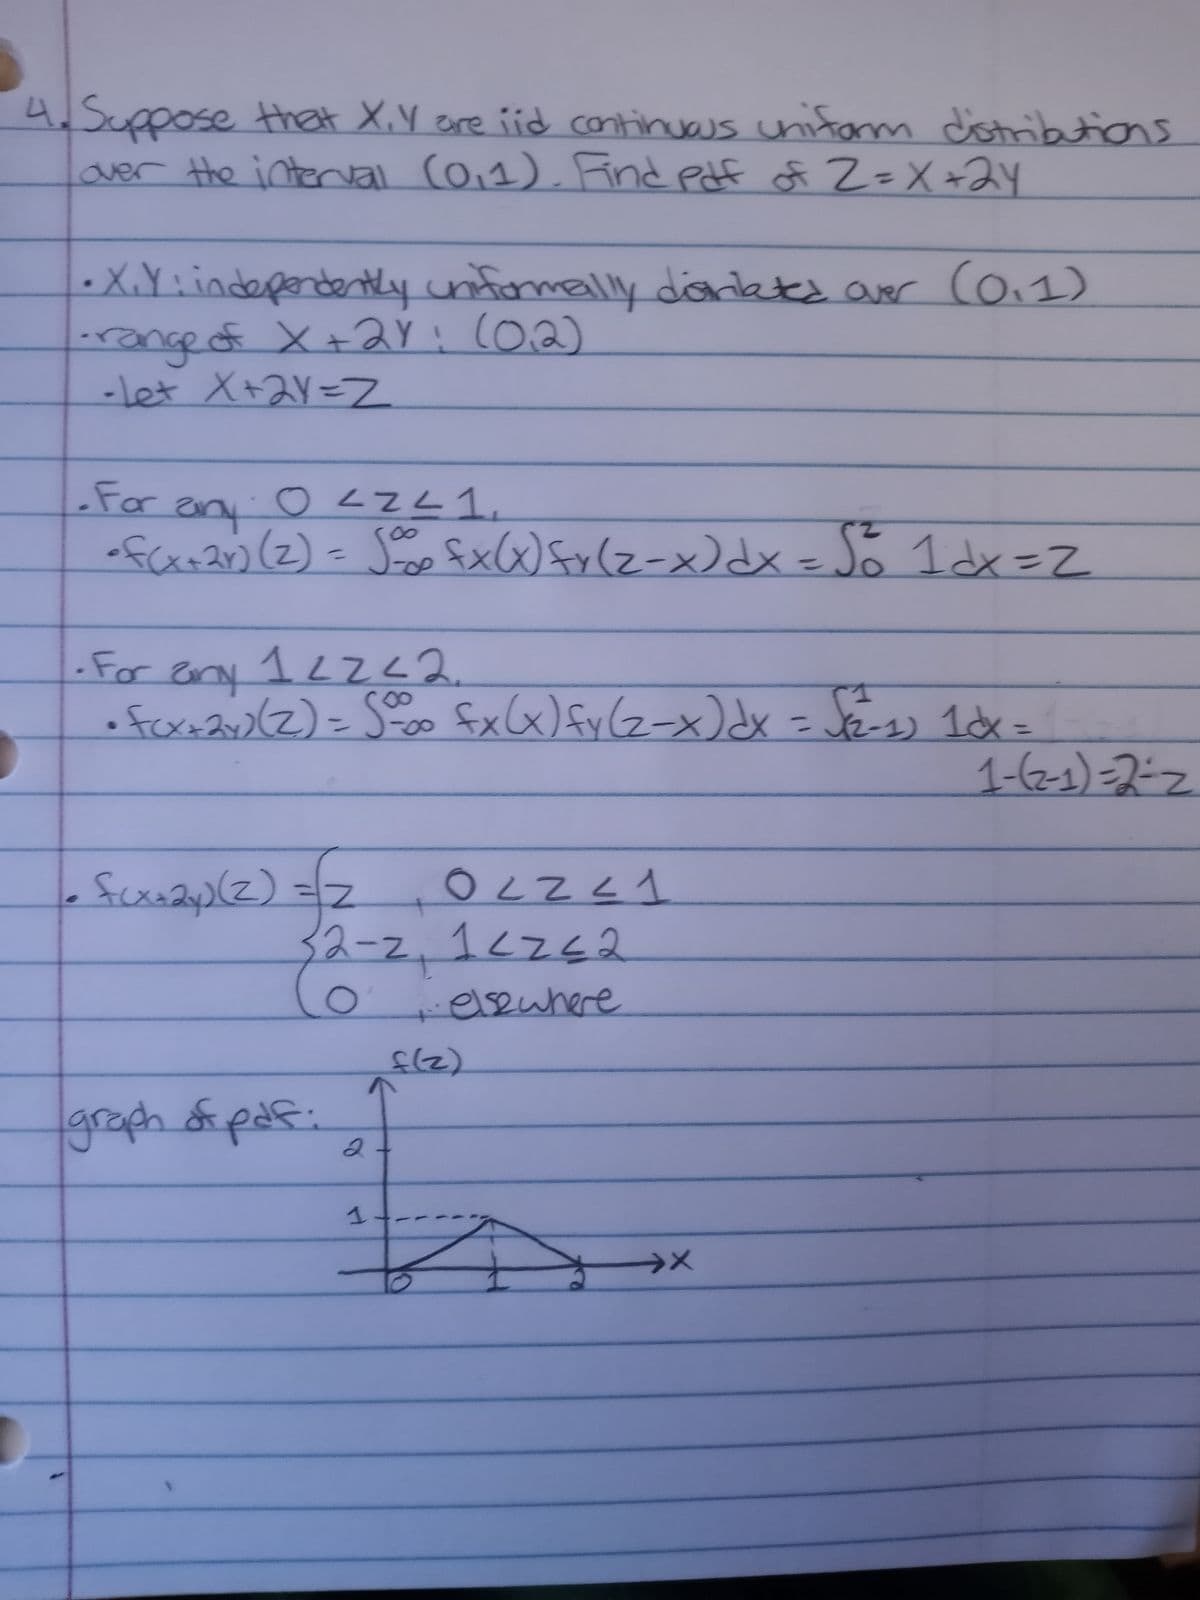 4. Suppose that X,Y are iid continuous uniform distributions
over the interval (0,1). Find pdf of Z=X+2Y
• X,Y: independently uniformally distributed over (0,1)
-range of X+2Y: (0,2)
-let X+2Y=Z
• For any 0<z≤1,
• f(x+2y)(z) = ∫-∞^∞ fx(x)fy(z-x)dx = ∫0^z 1dx=z
• For any 1<z<2,
• f(x+2y)(z) = ∫-∞^∞ fx(x)fy(z-x)dx = ∫(z-1)^1 1dx =
1-(z-1)=2-z
• f(x+2y)(z) = { z , 0<z≤1
2-z, 1<z≤2
0 , elsewhere
f(z)
graph of pdf:
2
1
x
0 1 2